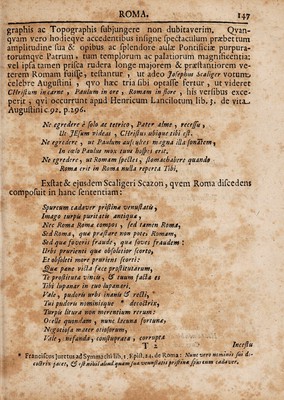 ROMA. 147
graphis ac Topographis subjungere non dubitaverim. Quan-
qvam vero hodieqve accedentibus insigne spectaculum præbet tum
amplitudine sua & opibus ac splendore aulæ Pontificiæ purpura-
torumqve Patrum, tum templorum ac palatiorum magnificentia:
vel ipsa tamen prisca rudera longe majorem & præstantiorem ve-
terem Romam fuisse, testantur, ut adeo Josephus Scaliger votum
celebre Augustini, qvo hæc tria sibi optasse fertur, ut videret
Christum in carne, Paulum in ore, Romam in flore, his versibus exce-
perit, qvi occurrunt apud Henricum Lancilotum lib. 3. de vita
Augustini c 92. p.296.
Ne egredere è solo ac tetrico, Pater alme, recessu,
Ut Jesum videas, Christus ubique tibi est.
Ne egredere, ut Paulum auscultes magna illa sonantem,
In
Ne egredere, ut Romam spectes, stomachabere quando
Roma erit in Roma nulla reperta Tibi,
Exstat & ejusdem Scaligeri Scazon, qvem Roma discedens
composuit in hanc sententiam:
Spurcum cadaver pristinæ venustatis,
Imago turpis puritatis antiquæ,
Nec Roma Roma compos, sed tamen Roma,
Sed Roma, quæ præstare non potes Romam,
Sed quæ foveris fraude, quæ foves fraudem:
Urbs prurienti quæ obsoletior scorto,
Et obsoleti more pruriens scorti:
Quæ pane victa fæce prostitutarum,
Te prostituta vincis, & tuum facta es
Tibi lupanar in tuo lupanari,
Vale, pudoris urbs inanis & recti,
Tui pudoris nominisque * decoctrix,
Turpis litura non merentium rerum:
Ocelle quondam, nunc lacuna fortunæ,
Negotiosa mater otiosorum,
Vale, nefanda, constuprata, corrupta
T 2 Incestu
* Franciscus Juretus ad Symmachi lib. 1. Epist. 24. de Roma: Nunc vero nominis sui de-
coctrix jacet, & est nihil aliud quam suæ venustatis pristinæ spurcum cadaver.